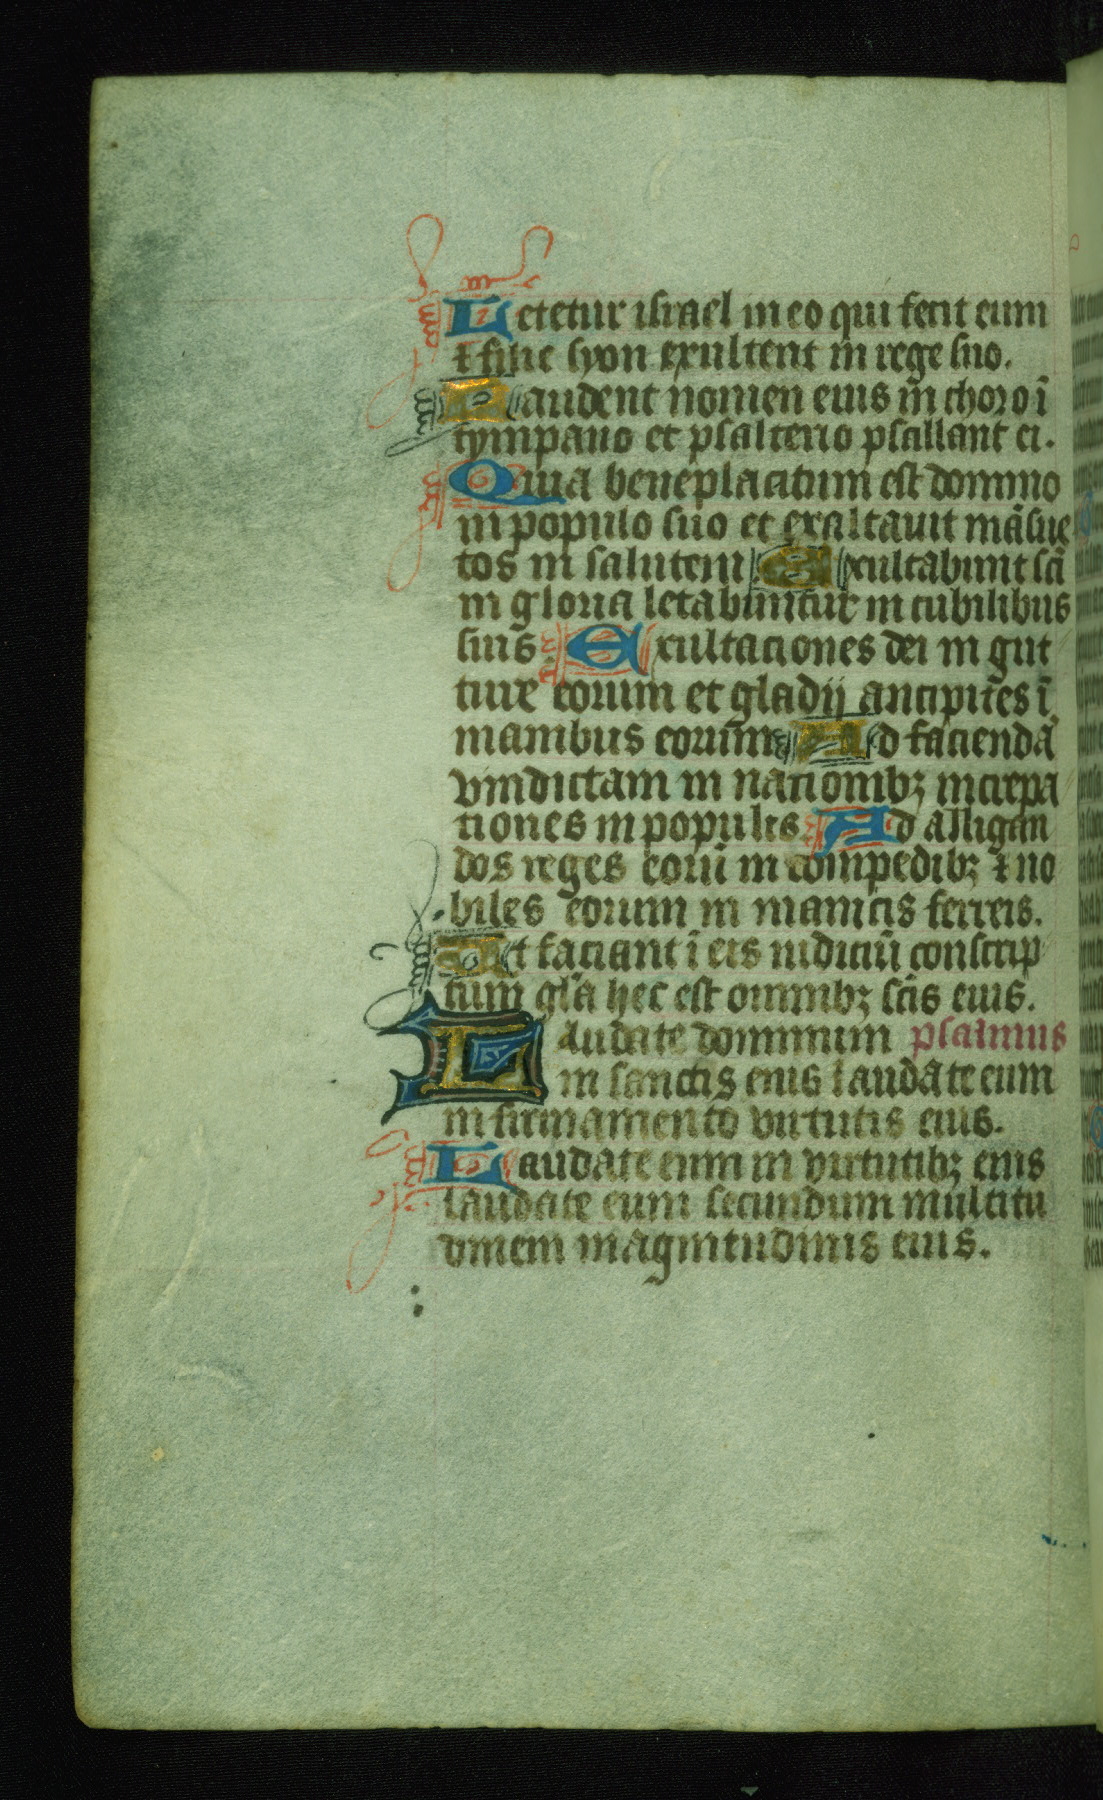 Letetur israel in eo qui fecit eum
⁊ filie syon exultent in rege suo.
Laudent nomen eius in choro ī
tympano et psalterio psallant ei.
Quia beneplacitum est domino
in populo suo et exaltauit māsue
tos in salutem Exultabunt scī
in gloria letabuntur in cubilibus
suis. Exultaciones dei in gut
ture eorum et gladij ancipites ī
manibus eorum Ad faciendā
vindictam in nationibꝫ increpa
tiones in populis Ad alligan
dos reges eorū in compedibꝫ ⁊ no
biles eorum in manicis ferreis.
Ut faciant ī eis iudiciū conscrip
tum glā hec est omnibꝫ scīs eius.
Laudate dominum psalmus
in sanctis eius laudate eum
in firmamento virtutis eius.
Laudate eum in virtutibꝫ eius
laudate eum secundum multitu
dinem magnitudinis eius.